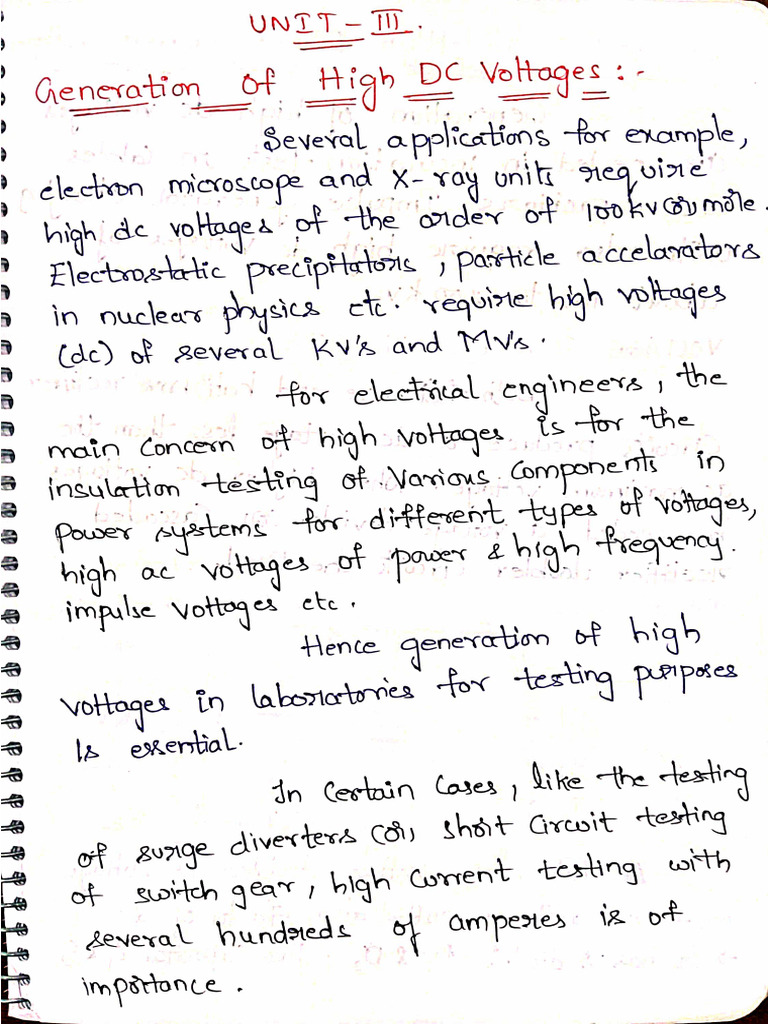 UNIT - III.
Generation Of High DC Voltages :-
Several applications for example,
electron microscope and X-ray units require
high dc voltages of the order of 100kv (or) more.
Electrostatic precipitators, particle accelarators
in nuclear physics etc. require high voltages
(dc) of several KV's and MV's.
for electrical engineers, the
main concern of high voltages is for the
insulation testing of various components in
power systems for different types of voltages,
high ac voltages of power & high frequency.
impulse voltages etc.
Hence generation of high
voltages in laboratories for testing purposes
Is essential.
In certain cases, like the testing
of surge diverters (or) short circuit testing
of switch gear, high current testing with
several hundreds of amperes is of
importance.